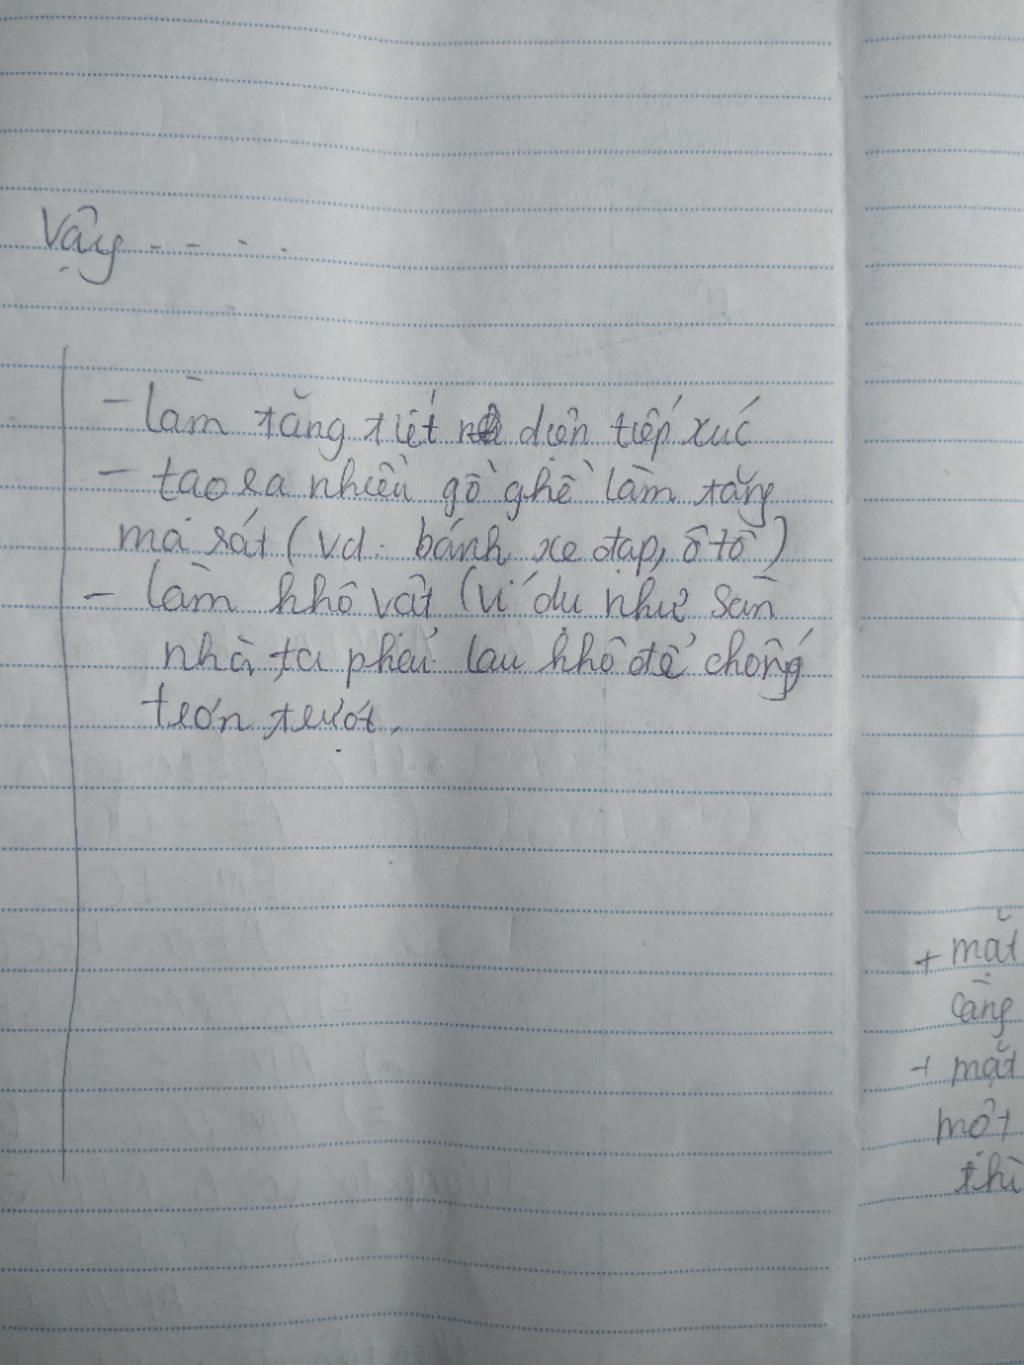 Vậy - - - -
- làm tăng tiết diện tiếp xúc
- tạo ra nhiều gồ ghề làm tăng
ma sát (vd: bánh xe đạp, ô tô)
- làm khô vật (ví dụ như sàn
nhà, ta phải lau khô để chống
trơn trượt.
+ mặt
càng
+ mặt
một
thì